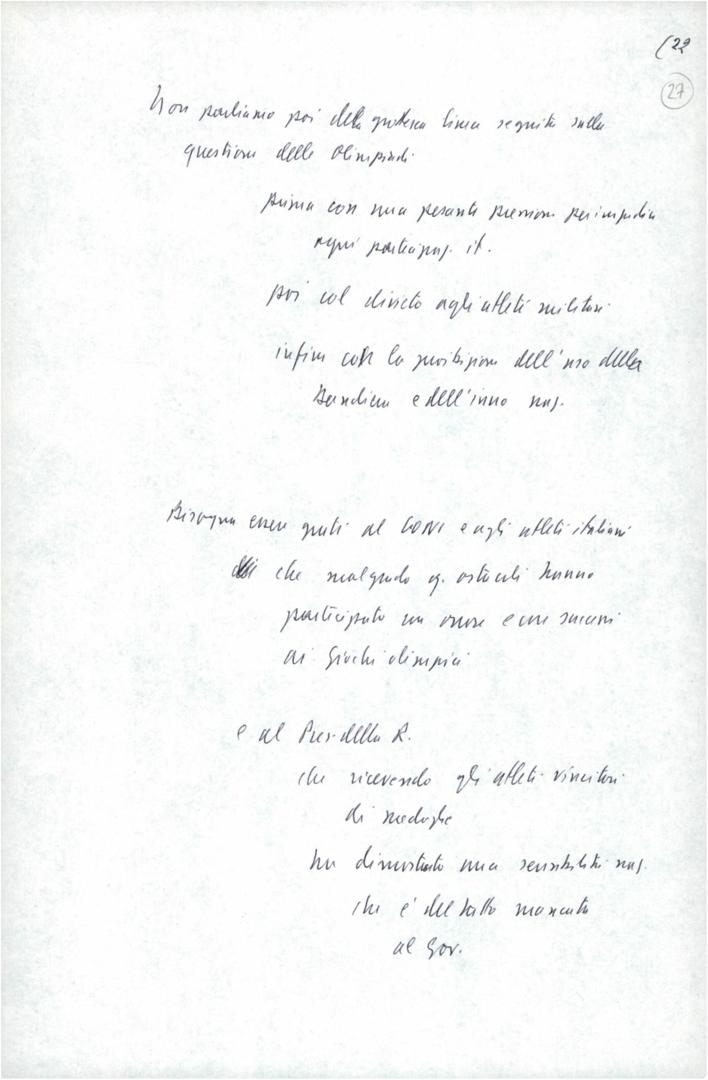 (22
27
Non parliamo poi della grottesca linea seguita sulla
questione delle Olimpiadi
prima con una pesante pressione per impedire
ogni partecipaz. it.
poi col divieto agli atleti militari
infine con la proibizione dell'uso della
Bandiera e dell'inno naz.
Bisogna essere grati al CONI e agli atleti italiani
che malgrado q. ostacoli hanno
partecipato con onore e con successi
ai Giochi olimpici
e al Pres. della R.
che ricevendo gli atleti vincitori
di medaglie
ha dimostrato una sensibilità naz.
che è del tutto mancata
al Gov.